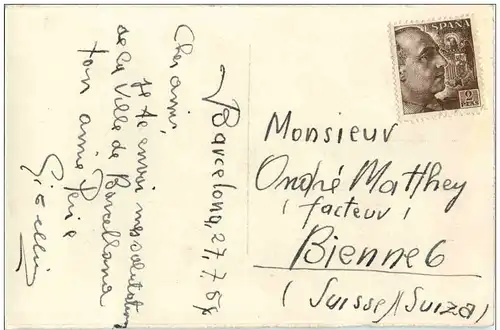 Barcelona, 27.7.54
Cher ami,
Je te envoi mes salutations
de la Ville de Barcellona
ton amie
ESPAÑA
2
PTAS
Monsieur
André Matthey
(facteur)
Bienne 6
(Suisse)(Suiza)